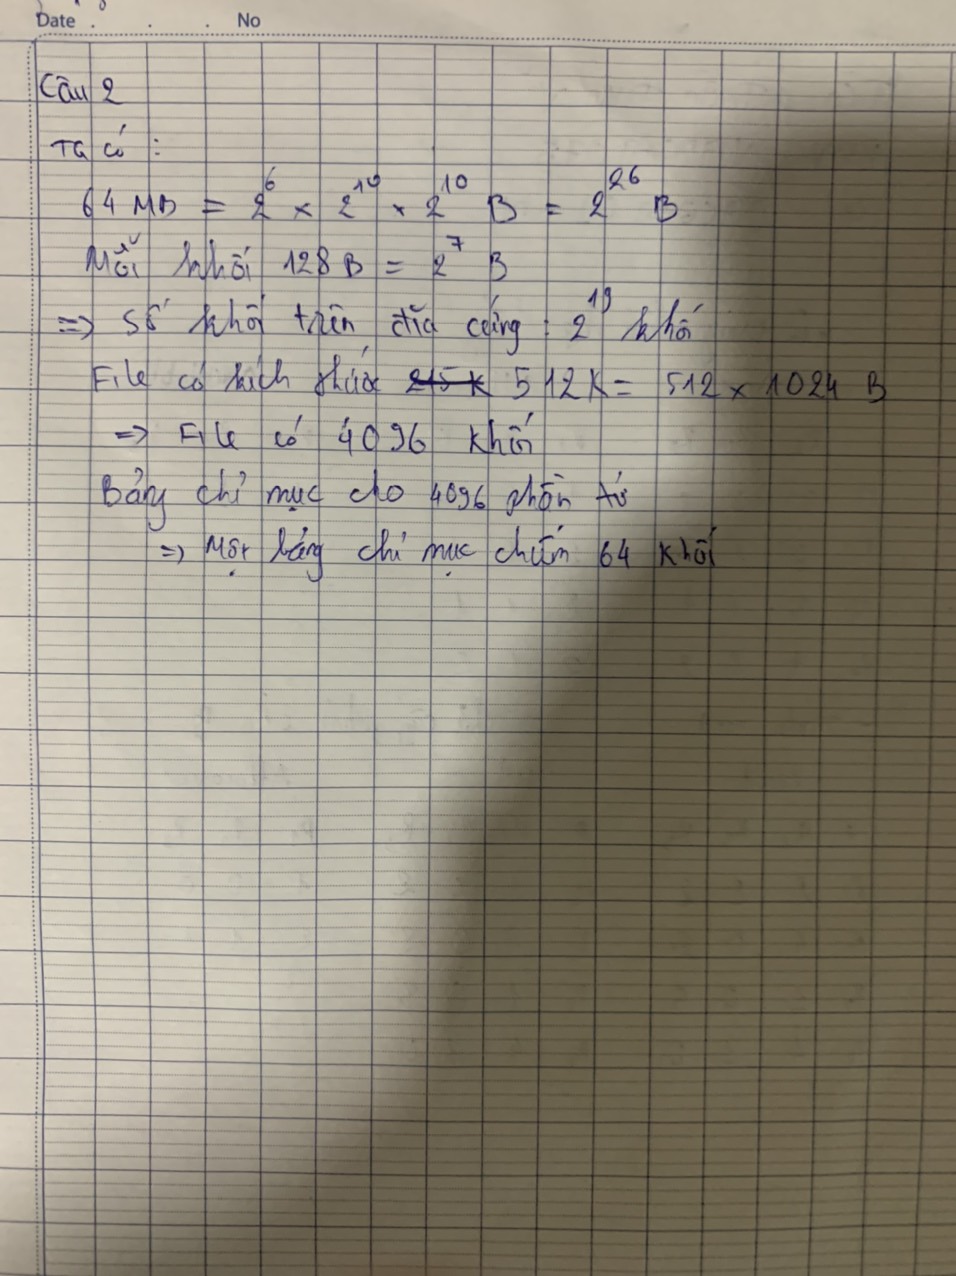 Date . . . No
Câu 2
Ta có :
64 MB = 2^6 × 2^10 × 2^10 B = 2^26 B
Mỗi khối 128 B = 2^7 B
=> Số khối trên đĩa cứng : 2^19 khối
File có kích thước 215 K 512 K = 512 × 1024 B
=> File có 4096 khối
Bảng chỉ mục cho 4096 phần tử
=> Một bảng chỉ mục chiếm 64 khối